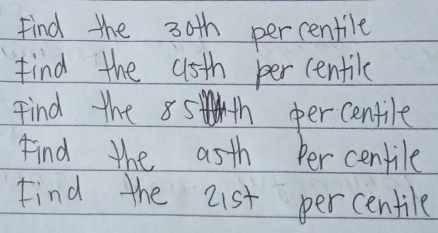 Find the 30th per centile
Find the 45th per centile
Find the 85th per centile
Find the 95th per centile
Find the 21st per centile